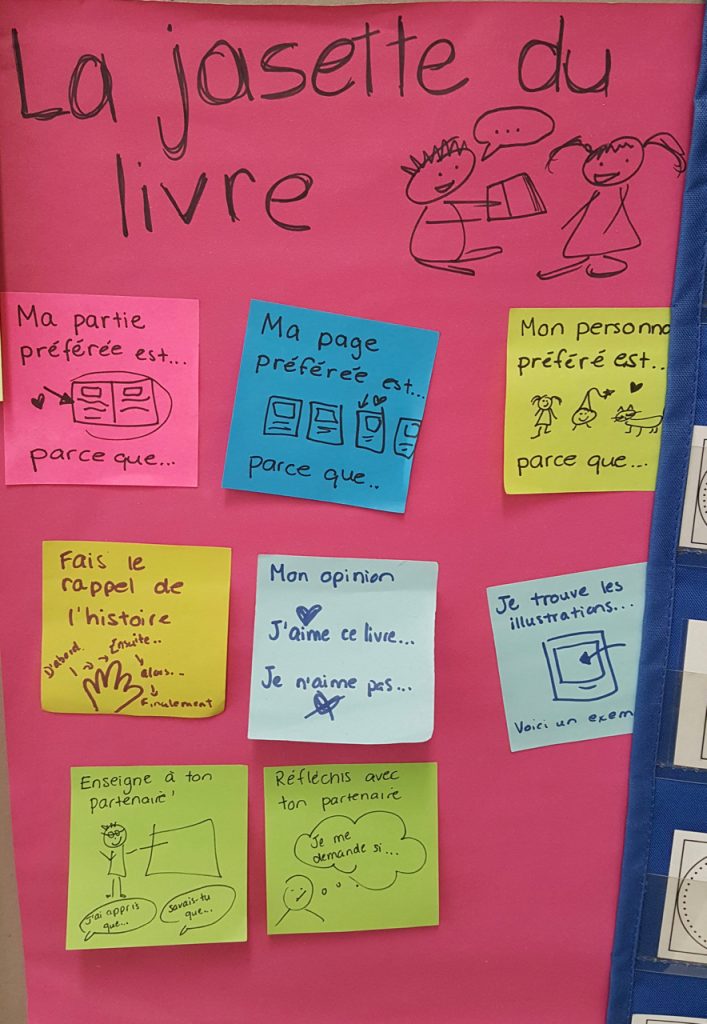 La jasette du
livre
...
Ma partie
préférée est...
parce que...
Ma page
préférée est...
parce que..
Mon personna
préféré est...
parce que...
Fais le
rappel de
l'histoire
D'abord.
Ensuite..
alors...
Finalement
Mon opinion
J'aime ce livre...
Je n'aime pas...
Je trouve les
illustrations...
Voici un exem
Enseigne à ton
partenaire
J'ai appris
que...
Savais-tu
que...
Réfléchis avec
ton partenaire
Je me
demande si...